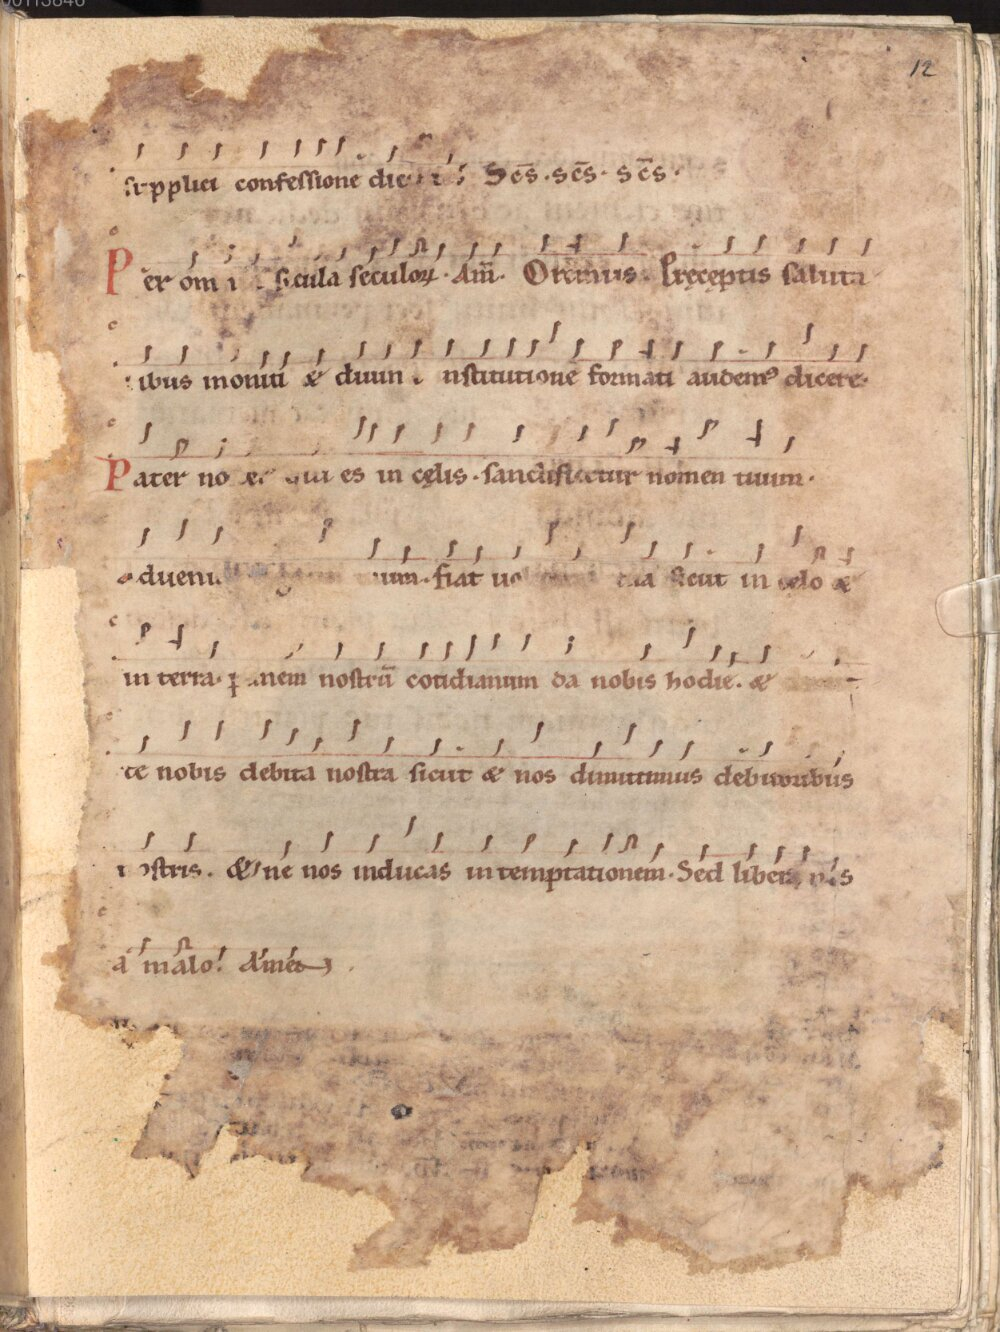 00113846
12
supplici confessione dicentes Sc̄s. sc̄s. sc̄s.
Per omnia secula seculoꝝ. Am̄. Oremus. Pręceptis saluta
ribus moniti & diuina institutione formati audemꝰ dicere.
Pater noster qui es in cęlis. sanctificetur nomen tuum.
adueniat regnum tuum. fiat uoluntas tua sicut in celo &
in terra. panem nostrū cotidianum da nobis hodie. &
te nobis debita nostra sicut & nos dimittimus debitoribus
nostris. & ne nos inducas in temptationem. Sed libera nos
a malo. amen.